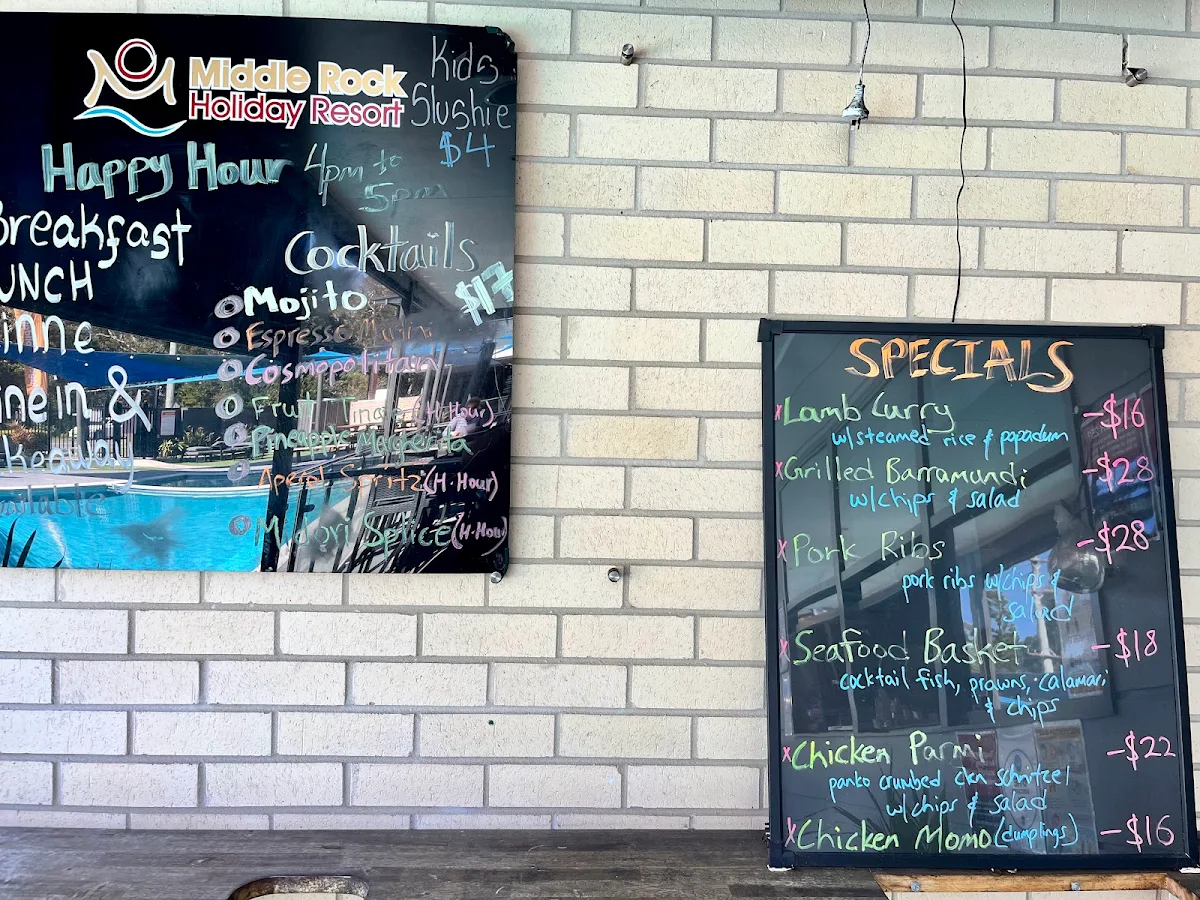 Middle Rock
Holiday Resort
Kids
Slushie
$4
Happy Hour 4pm to
5pm
Breakfast
UNCH
inne
ine in &
keaway
ailable
Cocktails
$17
Mojito
Espresso
Cosmopolitan
Fruit (H-Hour)
Pineapple Margerita
Aperol Spritz (H-Hour)
Midori Splice (H-Hour
SPECIALS
x Lamb Curry -$16
w/steamed rice & papadum
x Grilled Barramundi -$28
w/chips & salad
x Pork Ribs -$28
pork ribs w/chips &
salad
x Seafood Basket -$18
cocktail fish, prawns, calamari
& chips
x Chicken Parmi -$22
panko crumbed ckn schnitzel
w/chips & salad
x Chicken Momo (dumplings) -$16